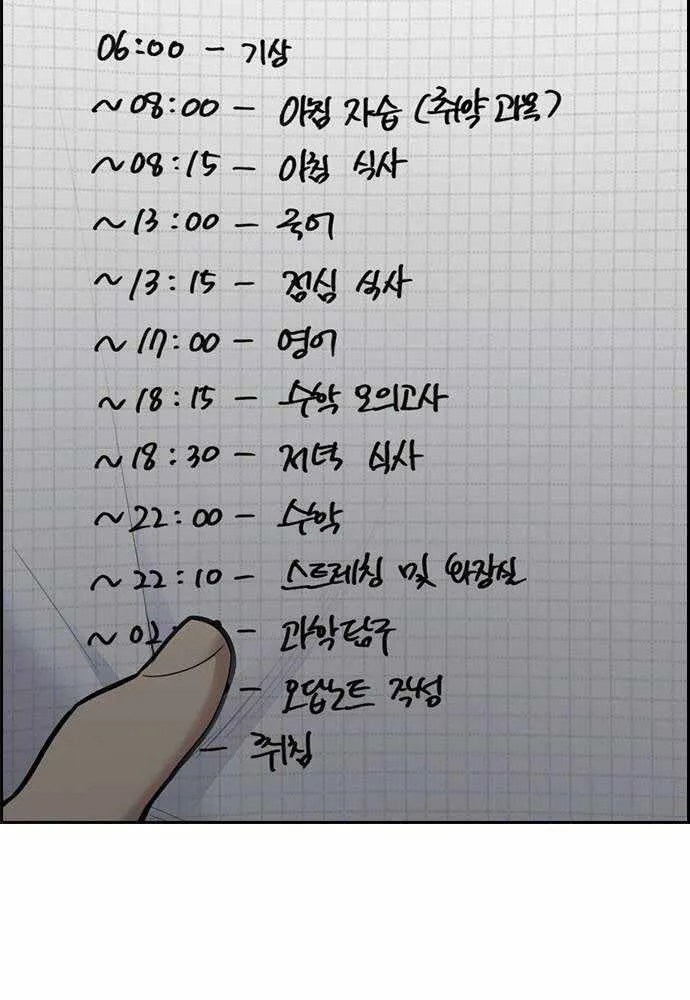 06:00 - 기상
~08:00 - 아침 자습 (취약 과목)
~08:15 - 아침 식사
~13:00 - 국어
~13:15 - 점심 식사
~17:00 - 영어
~18:15 - 수학 모의고사
~18:30 - 저녁 식사
~22:00 - 수학
~22:10 - 스트레칭 및 화장실
- 과학탐구
- 오답노트 작성
- 취침